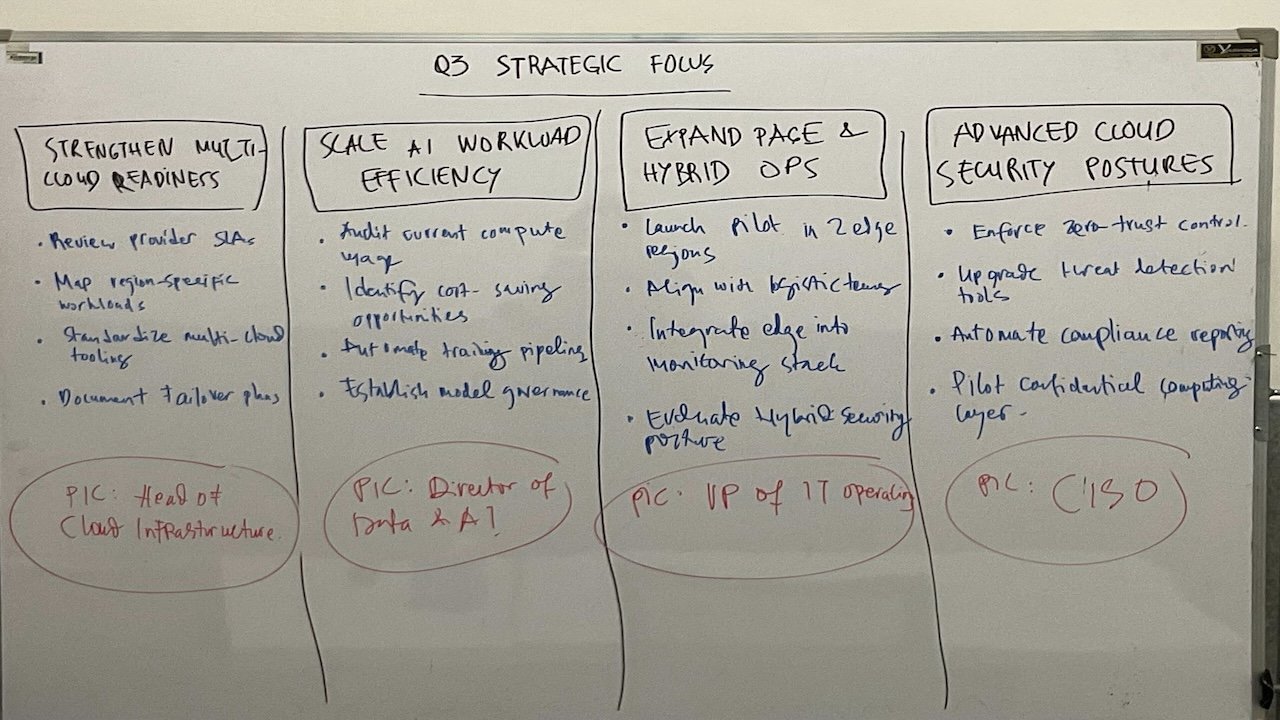 Q3 STRATEGIC FOCUS
STRENGTHEN MULTI-
CLOUD READINESS
• Review provider SLAs
• Map region-specific
workloads
• Standardize multi-cloud
tooling
• Document Failover plans
PIC: Head of
Cloud Infrastructure.
SCALE AI WORKLOAD
EFFICIENCY
• Audit current compute
usage
• Identify cost-saving
opportunities
• Automate training pipeline
• Establish model governance
PIC: Director of
Data & AI
EXPAND PAGE &
HYBRID OPS
• Launch pilot in 2 edge
regions
• Align with logistic teams
• Integrate edge into
monitoring stack
• Evaluate Hybrid security
posture
PIC: VP of IT operating
ADVANCED CLOUD
SECURITY POSTURES
• Enforce zero-trust control.
• Upgrade threat detection
tools
• Automate compliance reporting
• Pilot confidential computing
layer.
PIC: CISO